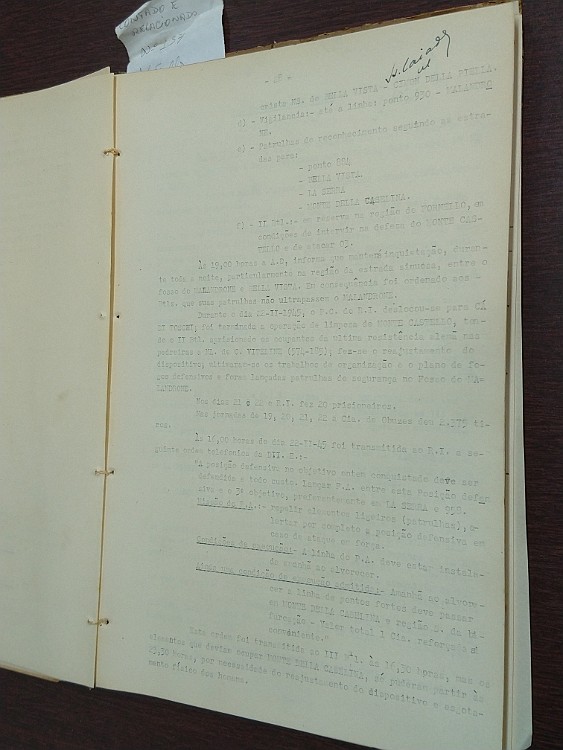 CONTADO E
RELACIONADO
- 18 -
crista NE. de BELLA VISTA - CINGW DELLA BIELLA.
d) - Vigilancia:- até a linha: ponto 930 - MALANDRO
NE.
e) - Patrulhas de reconhecimento segundo as estra-
das para:
- ponto 984
- BELLA VISTA
- LA SERRA
- MONTE DELLA CASELINA.
f) - II Btl.:- em reserva na região de FORNELLO, em
condições de intervir na defesa do MONTE CAS-
TELLO e de atacar 03.
Às 19,00 horas a A.D. informa que manterá inquietação, duran-
te toda a noite, particularmente na região da estrada sinuosa, entre o
fosso de MALANDRONE e BELLA VISTA. Em consequência foi ordenado aos
Btls. que suas patrulhas não ultrapassem o MALANDRONE.
Durante o dia 22-II-1945, o P.C. do R.I. deslocou-se para CÁ
DI; foi terminada a operação de limpeza de MONTE CASTELLO, ten-
do o II Btl. aprisionado os ocupantes da ultima resistência alemã nas
pedreiras a NE. de C. VITELINE; fez-se o reajustamento do
dispositivo; ultimaram-se os trabalhos de organização e o plano de fo-
gos defensivos e foram lançadas patrulhas de segurança no Fosso do MA-
LANDRONE.
Nos dias 21 e 22 o R.I. fez 20 prisioneiros.
Nas jornadas de 19, 20, 21, 22 a Cia. de Obuzes deu 2.375 ti-
ros.
Às 18,00 horas do dia 22-II-45 foi transmitida ao R.I. a se-
guinte ordem telefônica da DII.E.:-
"A posição defensiva no objetivo ontem conquistado deve ser
defendida a todo custo; lançar P.A. entre esta posição defen
siva e o 3º objetivo, preferentemente em LA SERRA e 958.
Missão da P.A.:- repelir elementos ligeiros (patrulhas), a-
lertar por completo a posição defensiva em
caso de ataque em força.
Condições de execução:- A linha de P.A. deve estar instala-
da amanhã ao alvorecer.
Ainda uma condição de execução adicional:- Amanhã ao alvore-
cer a linha de pontos fortes deve passar
em MONTE DELLA CASELINA e região N. da bi-
furcação - Valor total 1 Cia. reforçada si
conveniente."
Esta ordem foi transmitida ao III Btl. às 18,30 horas, mas os
elementos que devias ocupar MONTE DELLA CASELINA, só puderam partir às
23,30 horas, por necessidade do reajustamento do dispositivo e esgota-
mento físico dos homens.